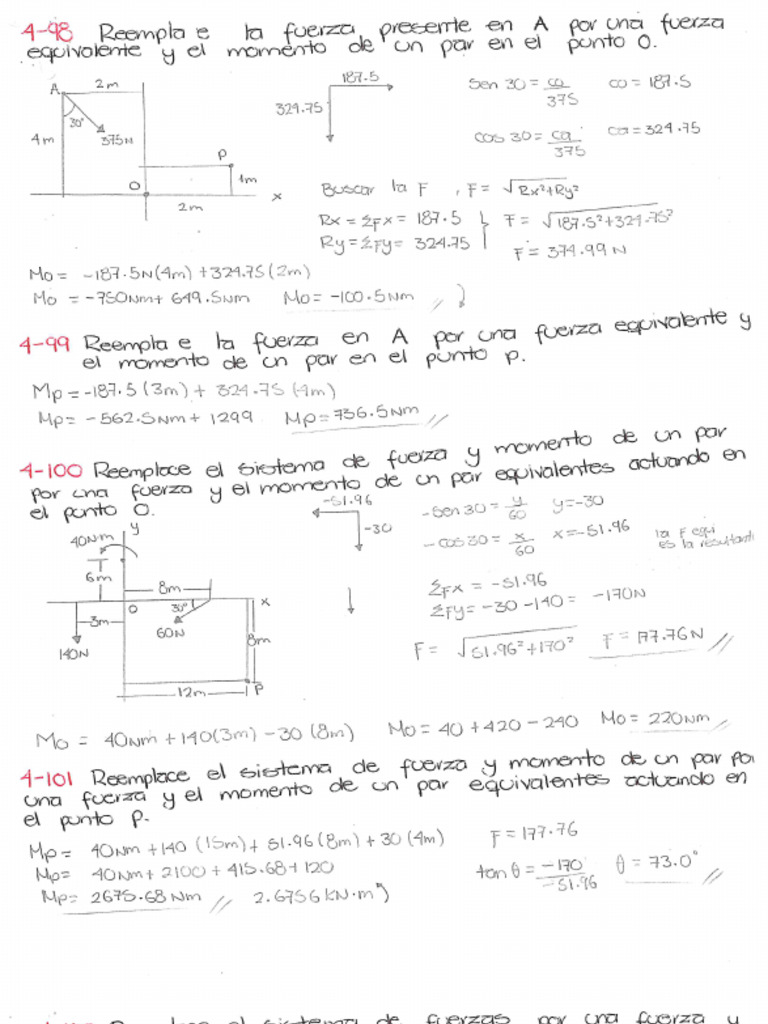 4-98 Reempla e la fuerza presente en A por una fuerza
equivalente y el momento de un par en el punto O.
A 2m
30°
375N
4m
P
1m
O
x
2m
187.5
324.75
Sen 30 = co/375 co = 187.5
cos 30 = ca/375 ca = 324.75
Buscar la F , F = √Rx²+Ry²
Rx = ΣFx = 187.5
Ry = ΣFy = 324.75
F = √187.5²+324.75²
F = 374.99 N
Mo = -187.5N(4m) +324.75(2m)
Mo = -750Nm + 649.5Nm Mo = -100.5Nm
4-99 Reempla e la fuerza en A por una fuerza equivalente y
el momento de un par en el punto p.
Mp = -187.5 (3m) + 324.75 (4m)
Mp = -562.5Nm + 1299 Mp = 736.5Nm
4-100 Reemplace el sistema de fuerza y momento de un par
por una fuerza y el momento de un par equivalentes actuando en
el punto O.
y
40Nm
6m
8m
O
30°
x
3m
60N
140N
8m
12m
P
-51.96
-30
-Sen 30 = y/60 y = -30
-cos 30 = x/60 x = -51.96
la F equi
es la resultant
ΣFx = -51.96
ΣFy = -30 -140 = -170N
F = √51.96²+170² F = 177.76N
Mo = 40Nm + 140(3m) - 30 (8m) Mo = 40 + 420 - 240 Mo = 220Nm
4-101 Reemplace el sistema de fuerza y momento de un par por
una fuerza y el momento de un par equivalentes actuando en
el punto P.
Mp = 40Nm + 140 (15m) + 51.96 (8m) + 30 (4m)
Mp = 40Nm + 2100 + 415.68 + 120
Mp = 2675.68 Nm 2.6756 kN·m
F = 177.76
tan θ = -170/-51.96 θ = 73.0°